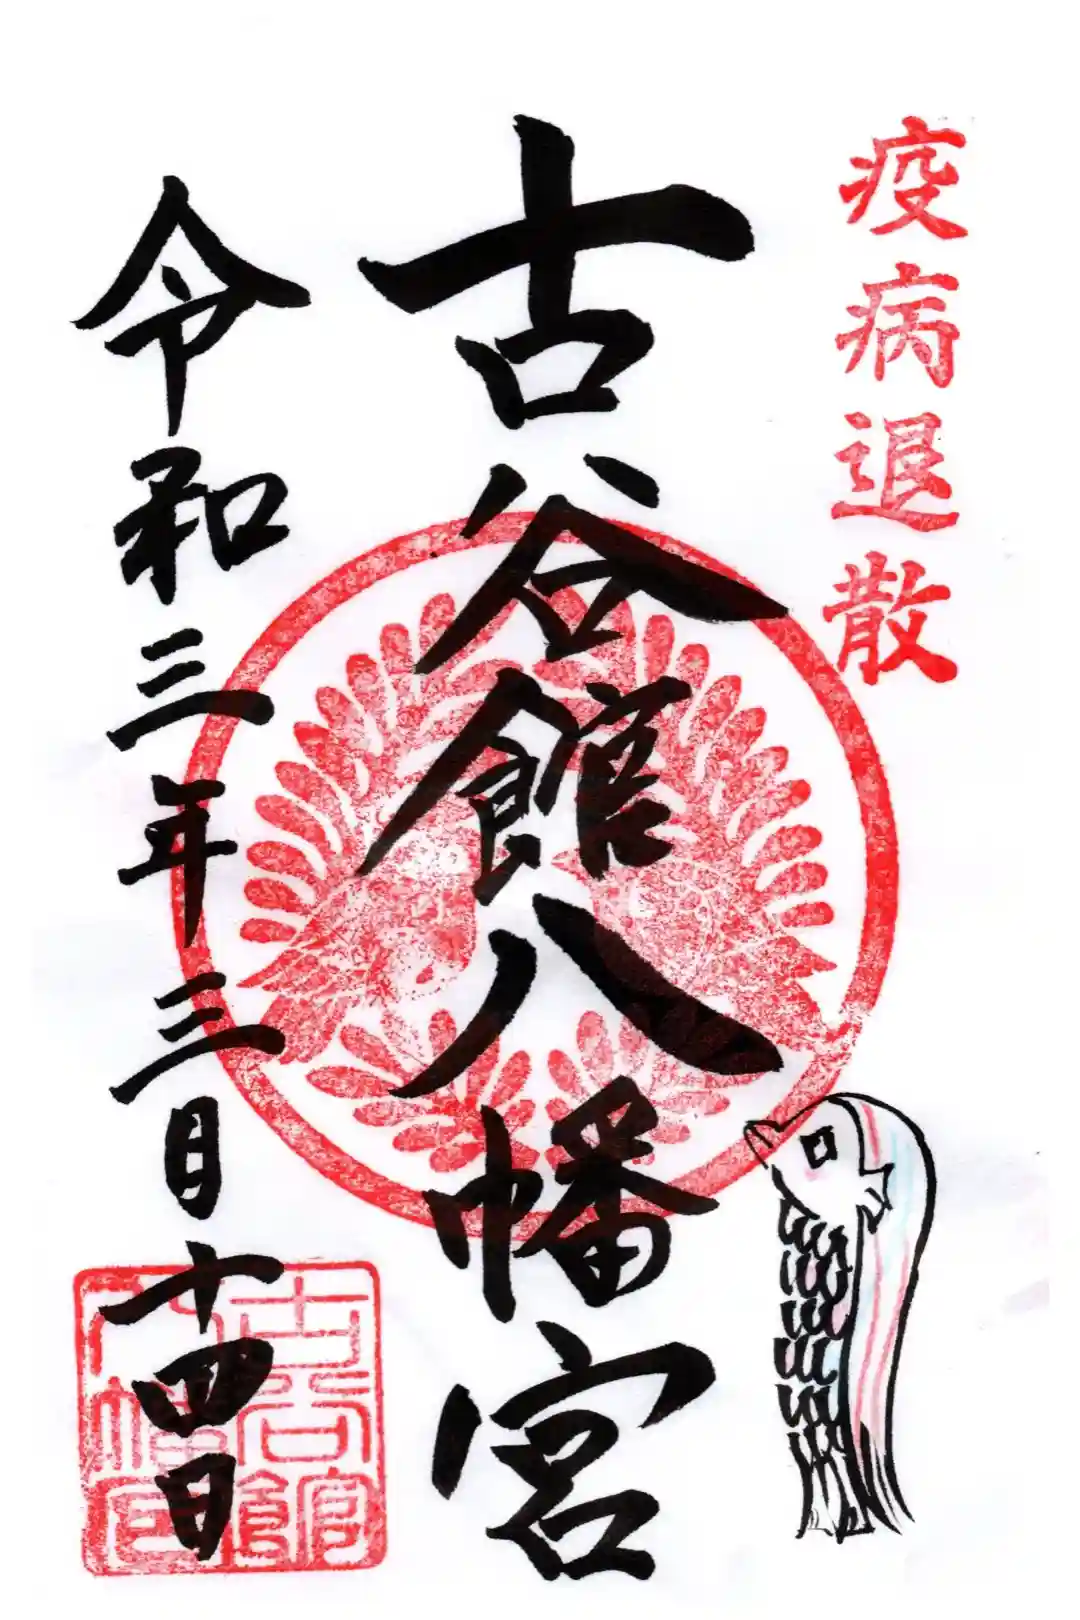 疫病退散
古谷館八幡宮
令和三年三月十四日
古谷館
八幡宮